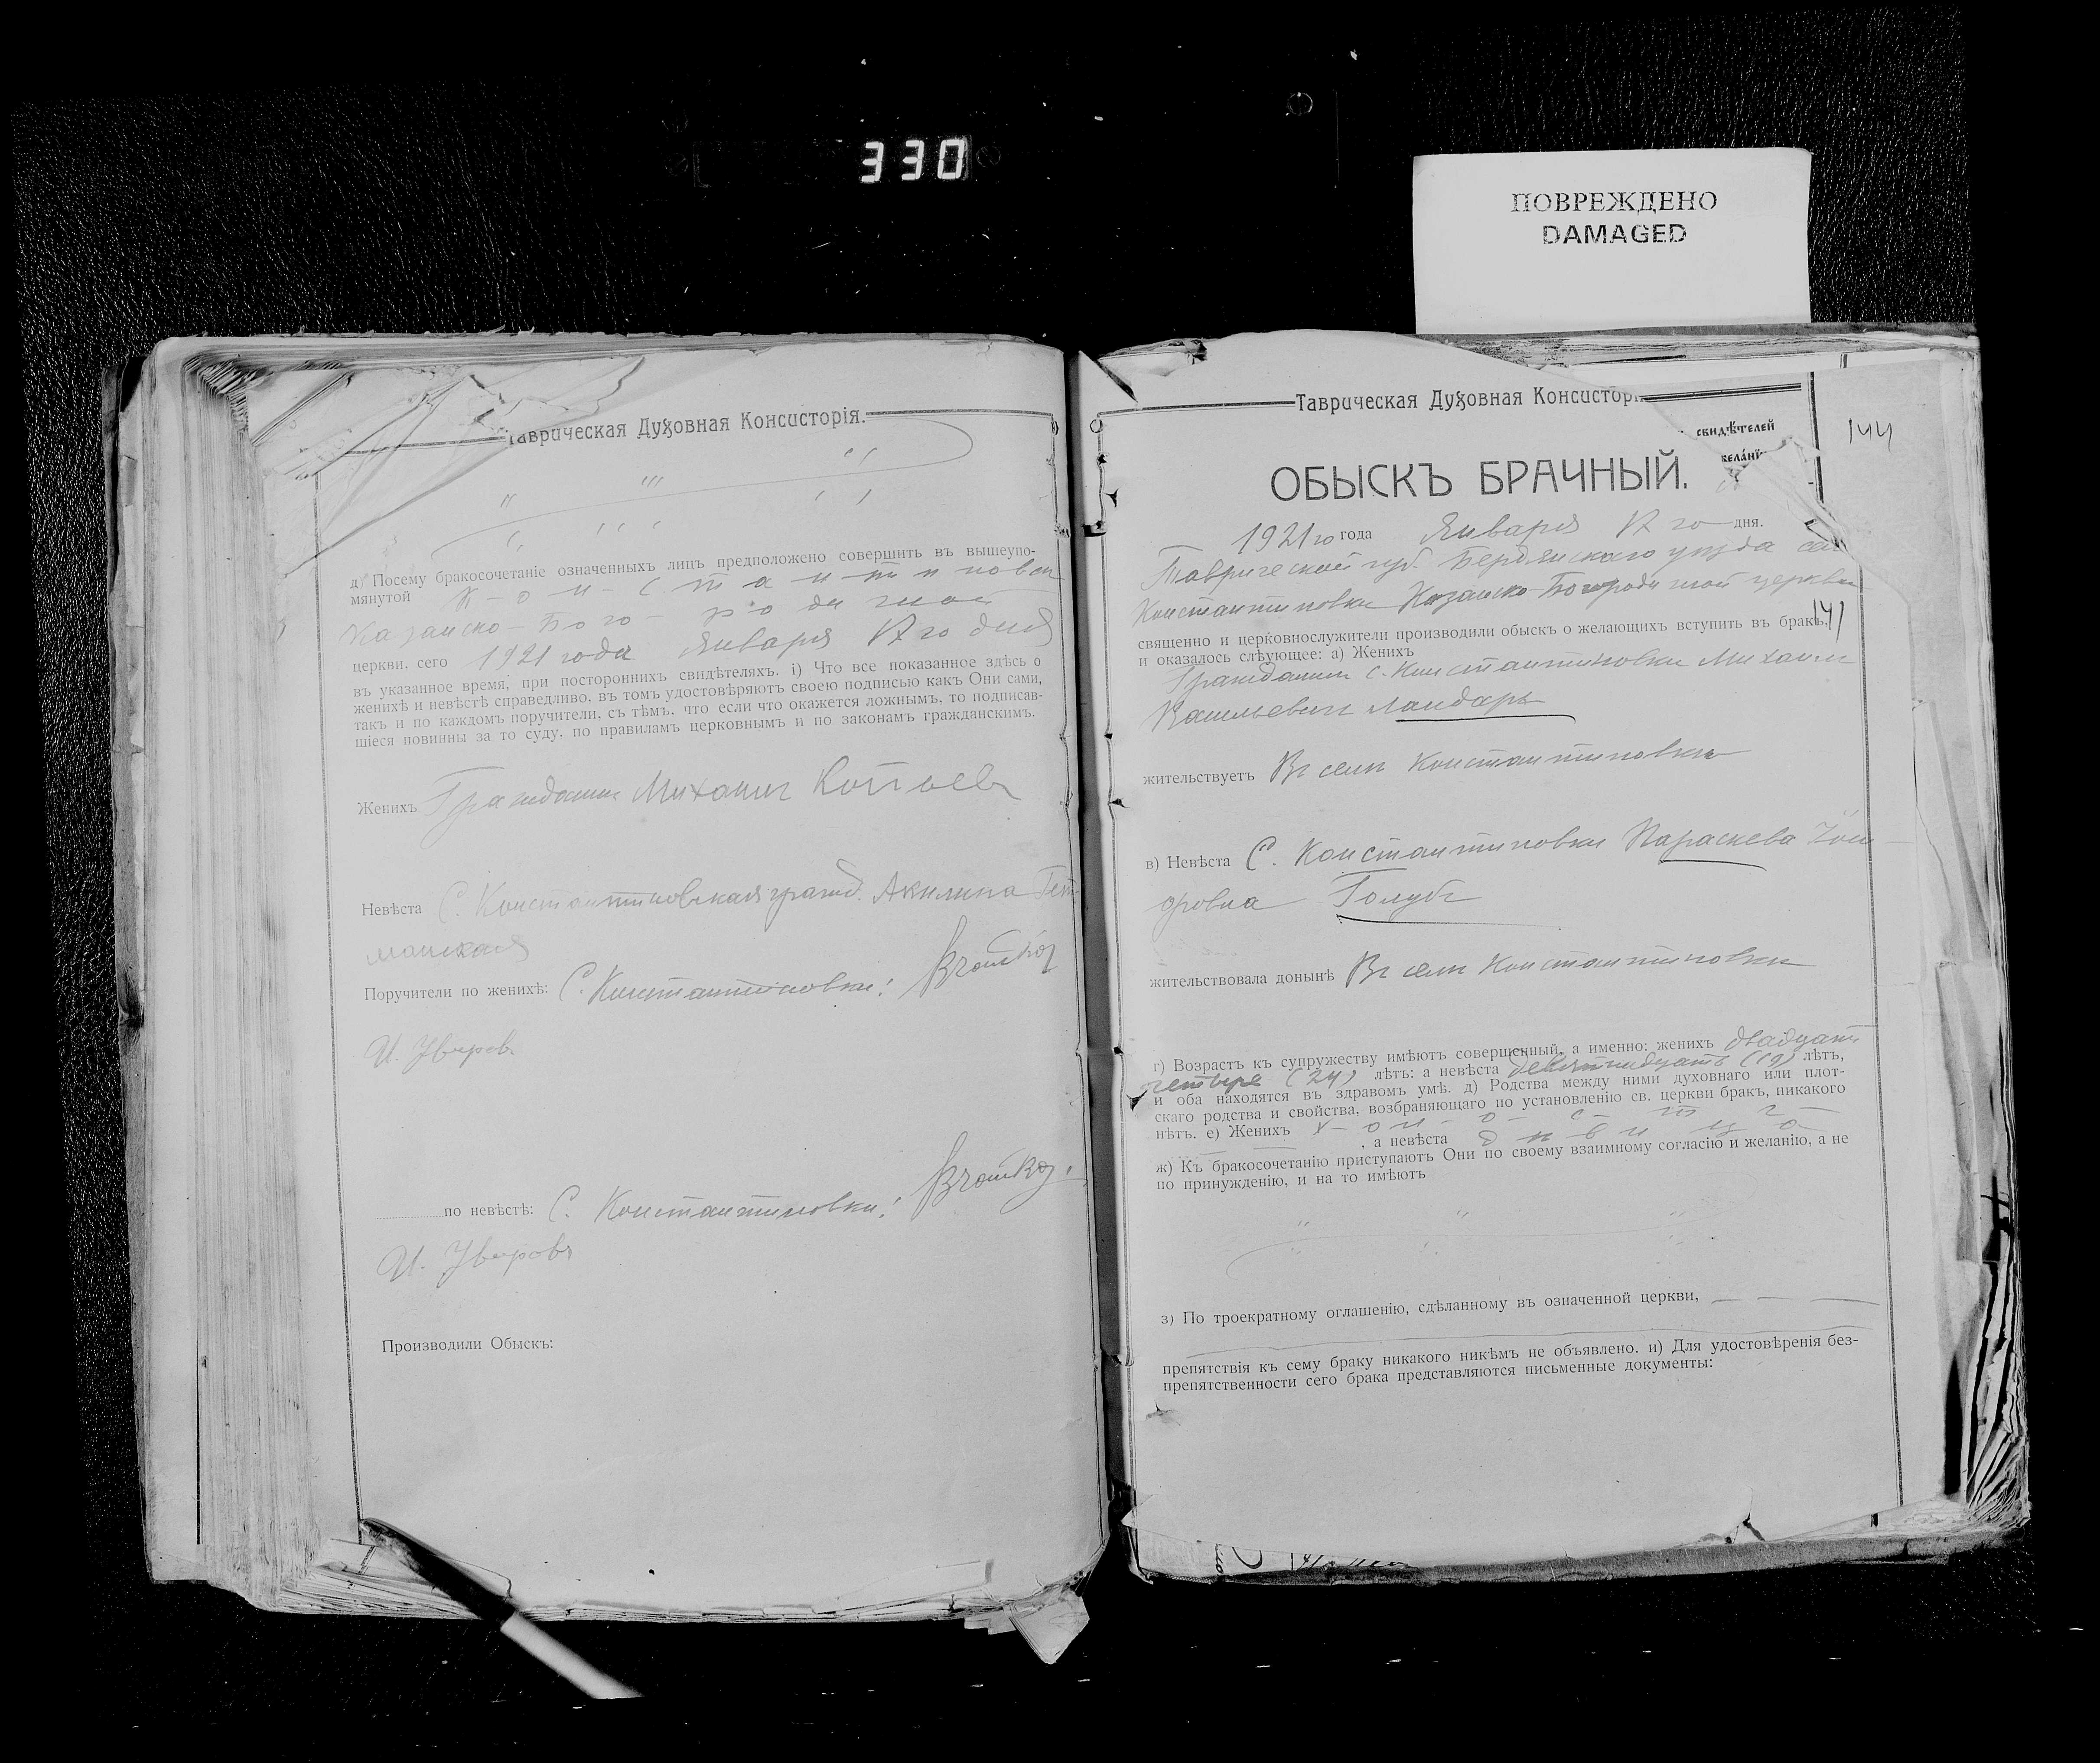 330
ПОВРЕЖДЕНО
DAMAGED
Таврическая Духовная Консисторія.
д) Посему бракосочетаніе означенныхъ лицъ предположено совершить въ вышеупо-
мянутой К-о-н-стантиновск
Казанско-Бого-родичной
церкви, сего 1921 года Января 17 го дня
въ указанное время, при постороннихъ свидѣтеляхъ. і) Что все показанное здѣсь о
женихѣ и невѣстѣ справедливо, въ томъ удостовѣряютъ своею подписью какъ Они сами,
такъ и по каждомъ поручители, съ тѣмъ, что если что окажется ложнымъ, то подписав-
шіеся повинны за то суду, по правиламъ церковнымъ и по законамъ гражданскимъ.
Женихъ Гражданинъ Михаилъ
Невѣста С. Константиновская гражд. Акилина Гет-
манская
Поручители по женихѣ: С. Константиновки:
И.
по невѣстѣ: С. Константиновки:
И.
Производили Обыскъ:
Таврическая Духовная Консисторі
свидѣтелей
144
ОБЫСКЪ БРАЧНЫЙ.
1921 го года Января 17 го дня.
Таврической губ. Бердянскаго уѣзда сел
Константиновки Казанско-Богородичной церкви
священно и церковнослужители производили обыскъ о желающихъ вступить въ бракъ, 141
и оказалось слѣующее: а) Женихъ
Гражданинъ с. Константиновки Михаилъ
Васильевичъ Ландарь
жительствуетъ Въ селѣ Константиновкѣ
в) Невѣста С. Константиновки Параскева
оровна Голубъ
жительствовала донынѣ Въ селѣ Константиновкѣ
г) Возрастъ къ супружеству имѣютъ совершенный, а именно: женихъ двадцать
четыре (24) лѣтъ: а невѣста девятнадцать (19) лѣтъ,
и оба находятся въ здравомъ умѣ. д) Родства между ними духовнаго или плот-
скаго родства и свойства, возбраняющаго по установленію св. церкви бракъ, никакого
нѣтъ. е) Женихъ х-о-л-о-с-т-ъ
, а невѣста дѣвица
ж) Къ бракосочетанію приступаютъ Они по своему взаимному согласію и желанію, а не
по принужденію, и на то имѣютъ
з) По троекратному оглашенію, сдѣланному въ означенной церкви,
препятствія къ сему браку никакого никѣмъ не объявлено. и) Для удостовѣренія без-
препятственности сего брака представляются письменные документы: